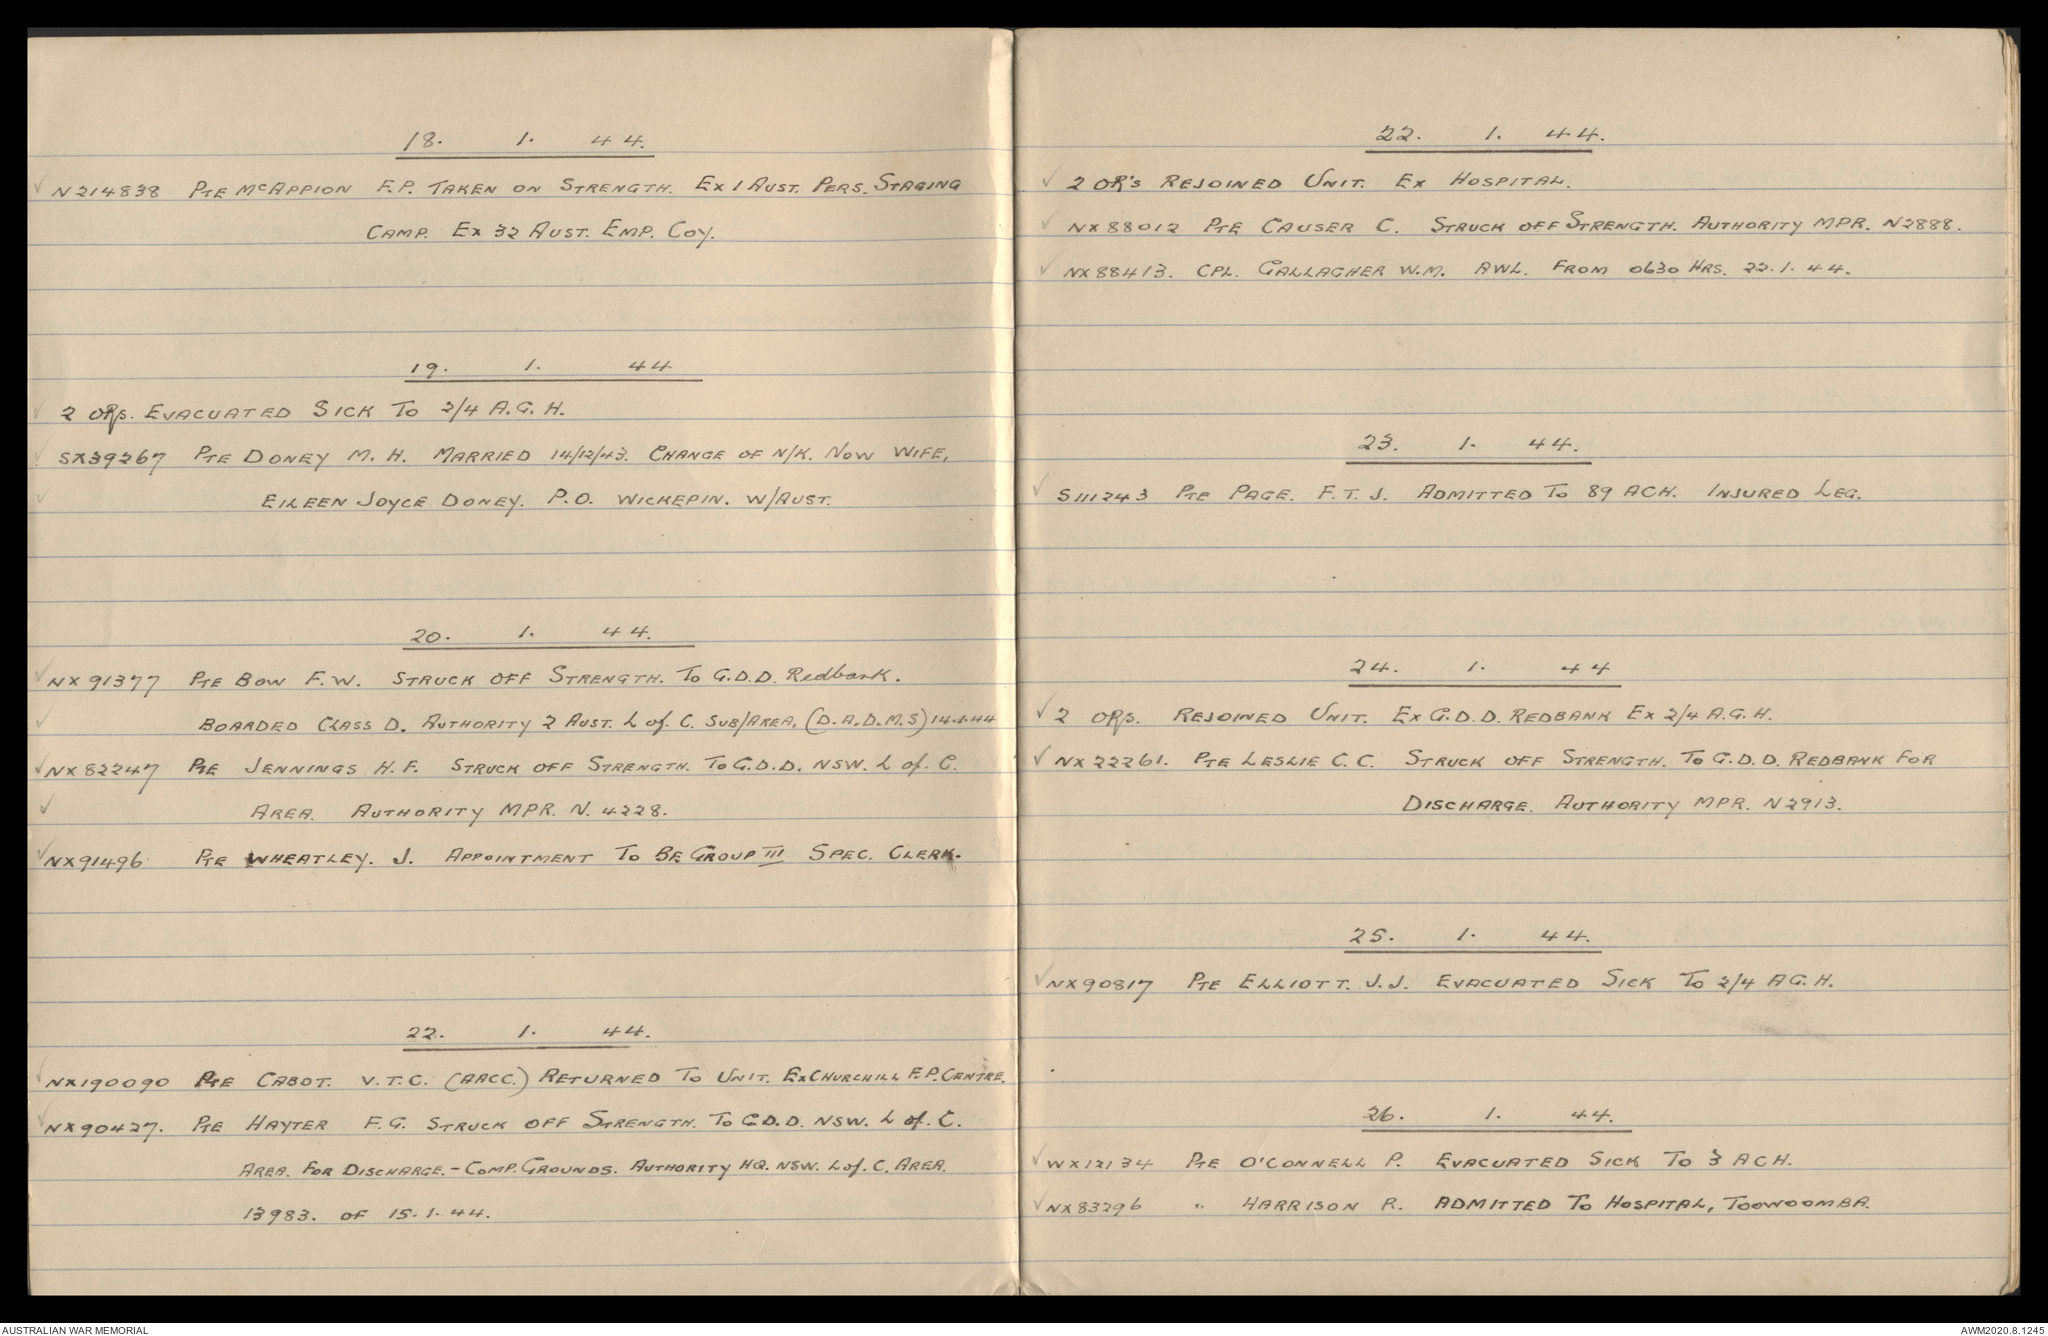 18. 1. 44.
✓ N214838 Pte McAppion F.P. Taken on Strength. Ex 1 Aust. Pers. Staging
Camp. Ex 32 Aust. Emp. Coy.
19. 1. 44
✓ 2 ORs. Evacuated Sick To 2/4 A.G.H.
✓ SX39267 Pte Doney M.H. Married 14/12/43. Change of N/K. Now Wife,
✓ Eileen Joyce Doney. P.O. Wickepin. W/Aust.
20. 1. 44.
✓ NX91377 Pte Bow F.W. Struck off Strength. To G.D.D. Redbank.
✓ Boarded Class D. Authority 2 Aust. L of. C. Sub/Area. (D.A.D.M.S) 14.1.44
✓ NX82247 Pte Jennings H.F. Struck off Strength. To G.D.D. NSW. L of. C.
✓ Area. Authority MPR. N. 4228.
✓ NX91496 Pte Wheatley. J. Appointment To Be Group III Spec. Clerk.
22. 1. 44.
✓ NX190090 Pte Cabot. V.T.C. (AACC.) Returned To Unit. Ex Churchill F.P. Centre.
✓ NX90427. Pte Hayter F.G. Struck off Strength. To G.D.D. NSW. L of. C.
Area. For Discharge. - Comp. Grounds. Authority HQ. NSW. L of. C. Area.
13983. of 15.1.44.
22. 1. 44.
✓ 2 OR's Rejoined Unit. Ex Hospital.
✓ NX88012 Pte Causer C. Struck off Strength. Authority MPR. N2888.
✓ NX88413. Cpl. Gallagher W.M. AWL. From 0630 Hrs. 22.1.44.
23. 1. 44.
✓ S111243 Pte Page. F.T.J. Admitted To 89 ACH. Injured Leg.
24. 1. 44
✓ 2 ORs. Rejoined Unit. Ex G.D.D. Redbank Ex 2/4 A.G.H.
✓ NX22261. Pte Leslie C.C. Struck off Strength. To G.D.D. Redbank For
Discharge. Authority MPR. N2913.
25. 1. 44.
✓ NX90817 Pte Elliott. J.J. Evacuated Sick To 2/4 A.G.H.
26. 1. 44.
✓ WX12134 Pte O'Connell P. Evacuated Sick To 3 ACH.
✓ NX83296 " Harrison R. Admitted To Hospital, Toowoomba.
AUSTRALIAN WAR MEMORIAL
AWM2020.8.1245